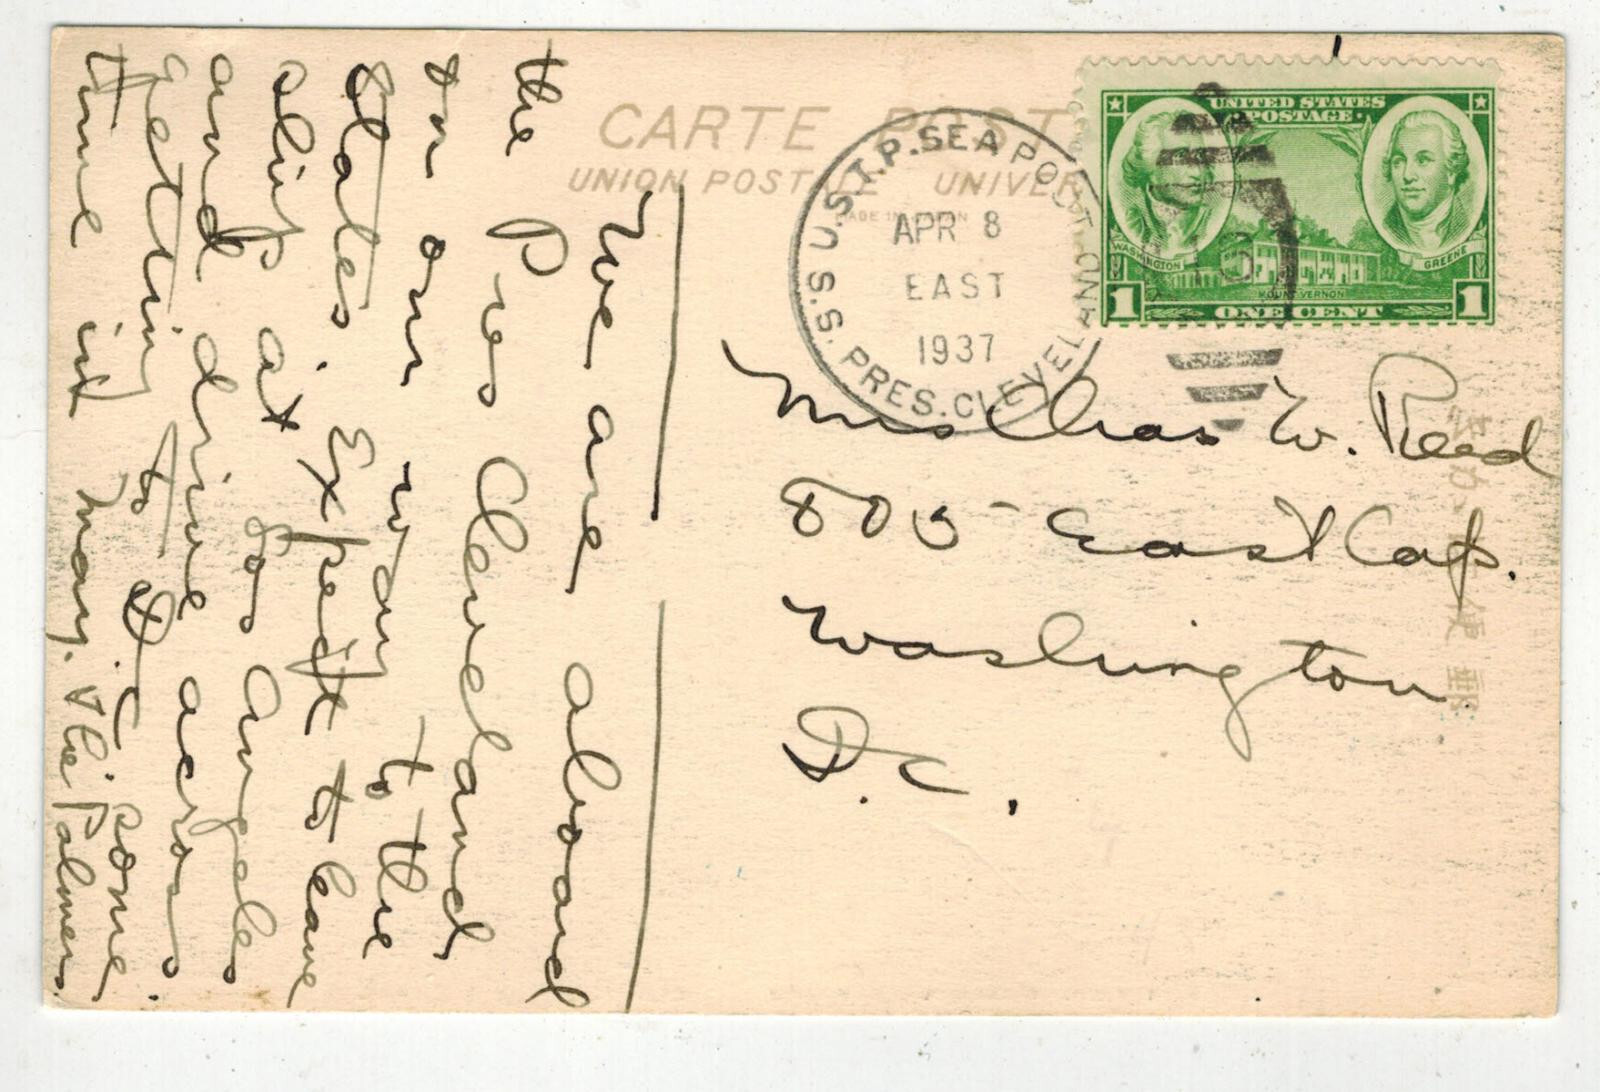 CARTE POST
UNION POSTALE UNIVER
MADE IN JAPAN
U.S.T.P. SEA POST
APR 8
EAST
1937
S.S. PRES. CLEVELAND
UNITED STATES
POSTAGE
WASHINGTON
GREENE
MOUNT VERNON
1 ONE CENT 1
Mrs Chas W. Reed
800 - East Cap.
Washington
D.C.
We are aboard
the Pres Cleveland
on our way to the
States. Expect to leave
ship at Los Angeles
and drive across
getting to D.C. some
time in May. The Palmers.
便
郵